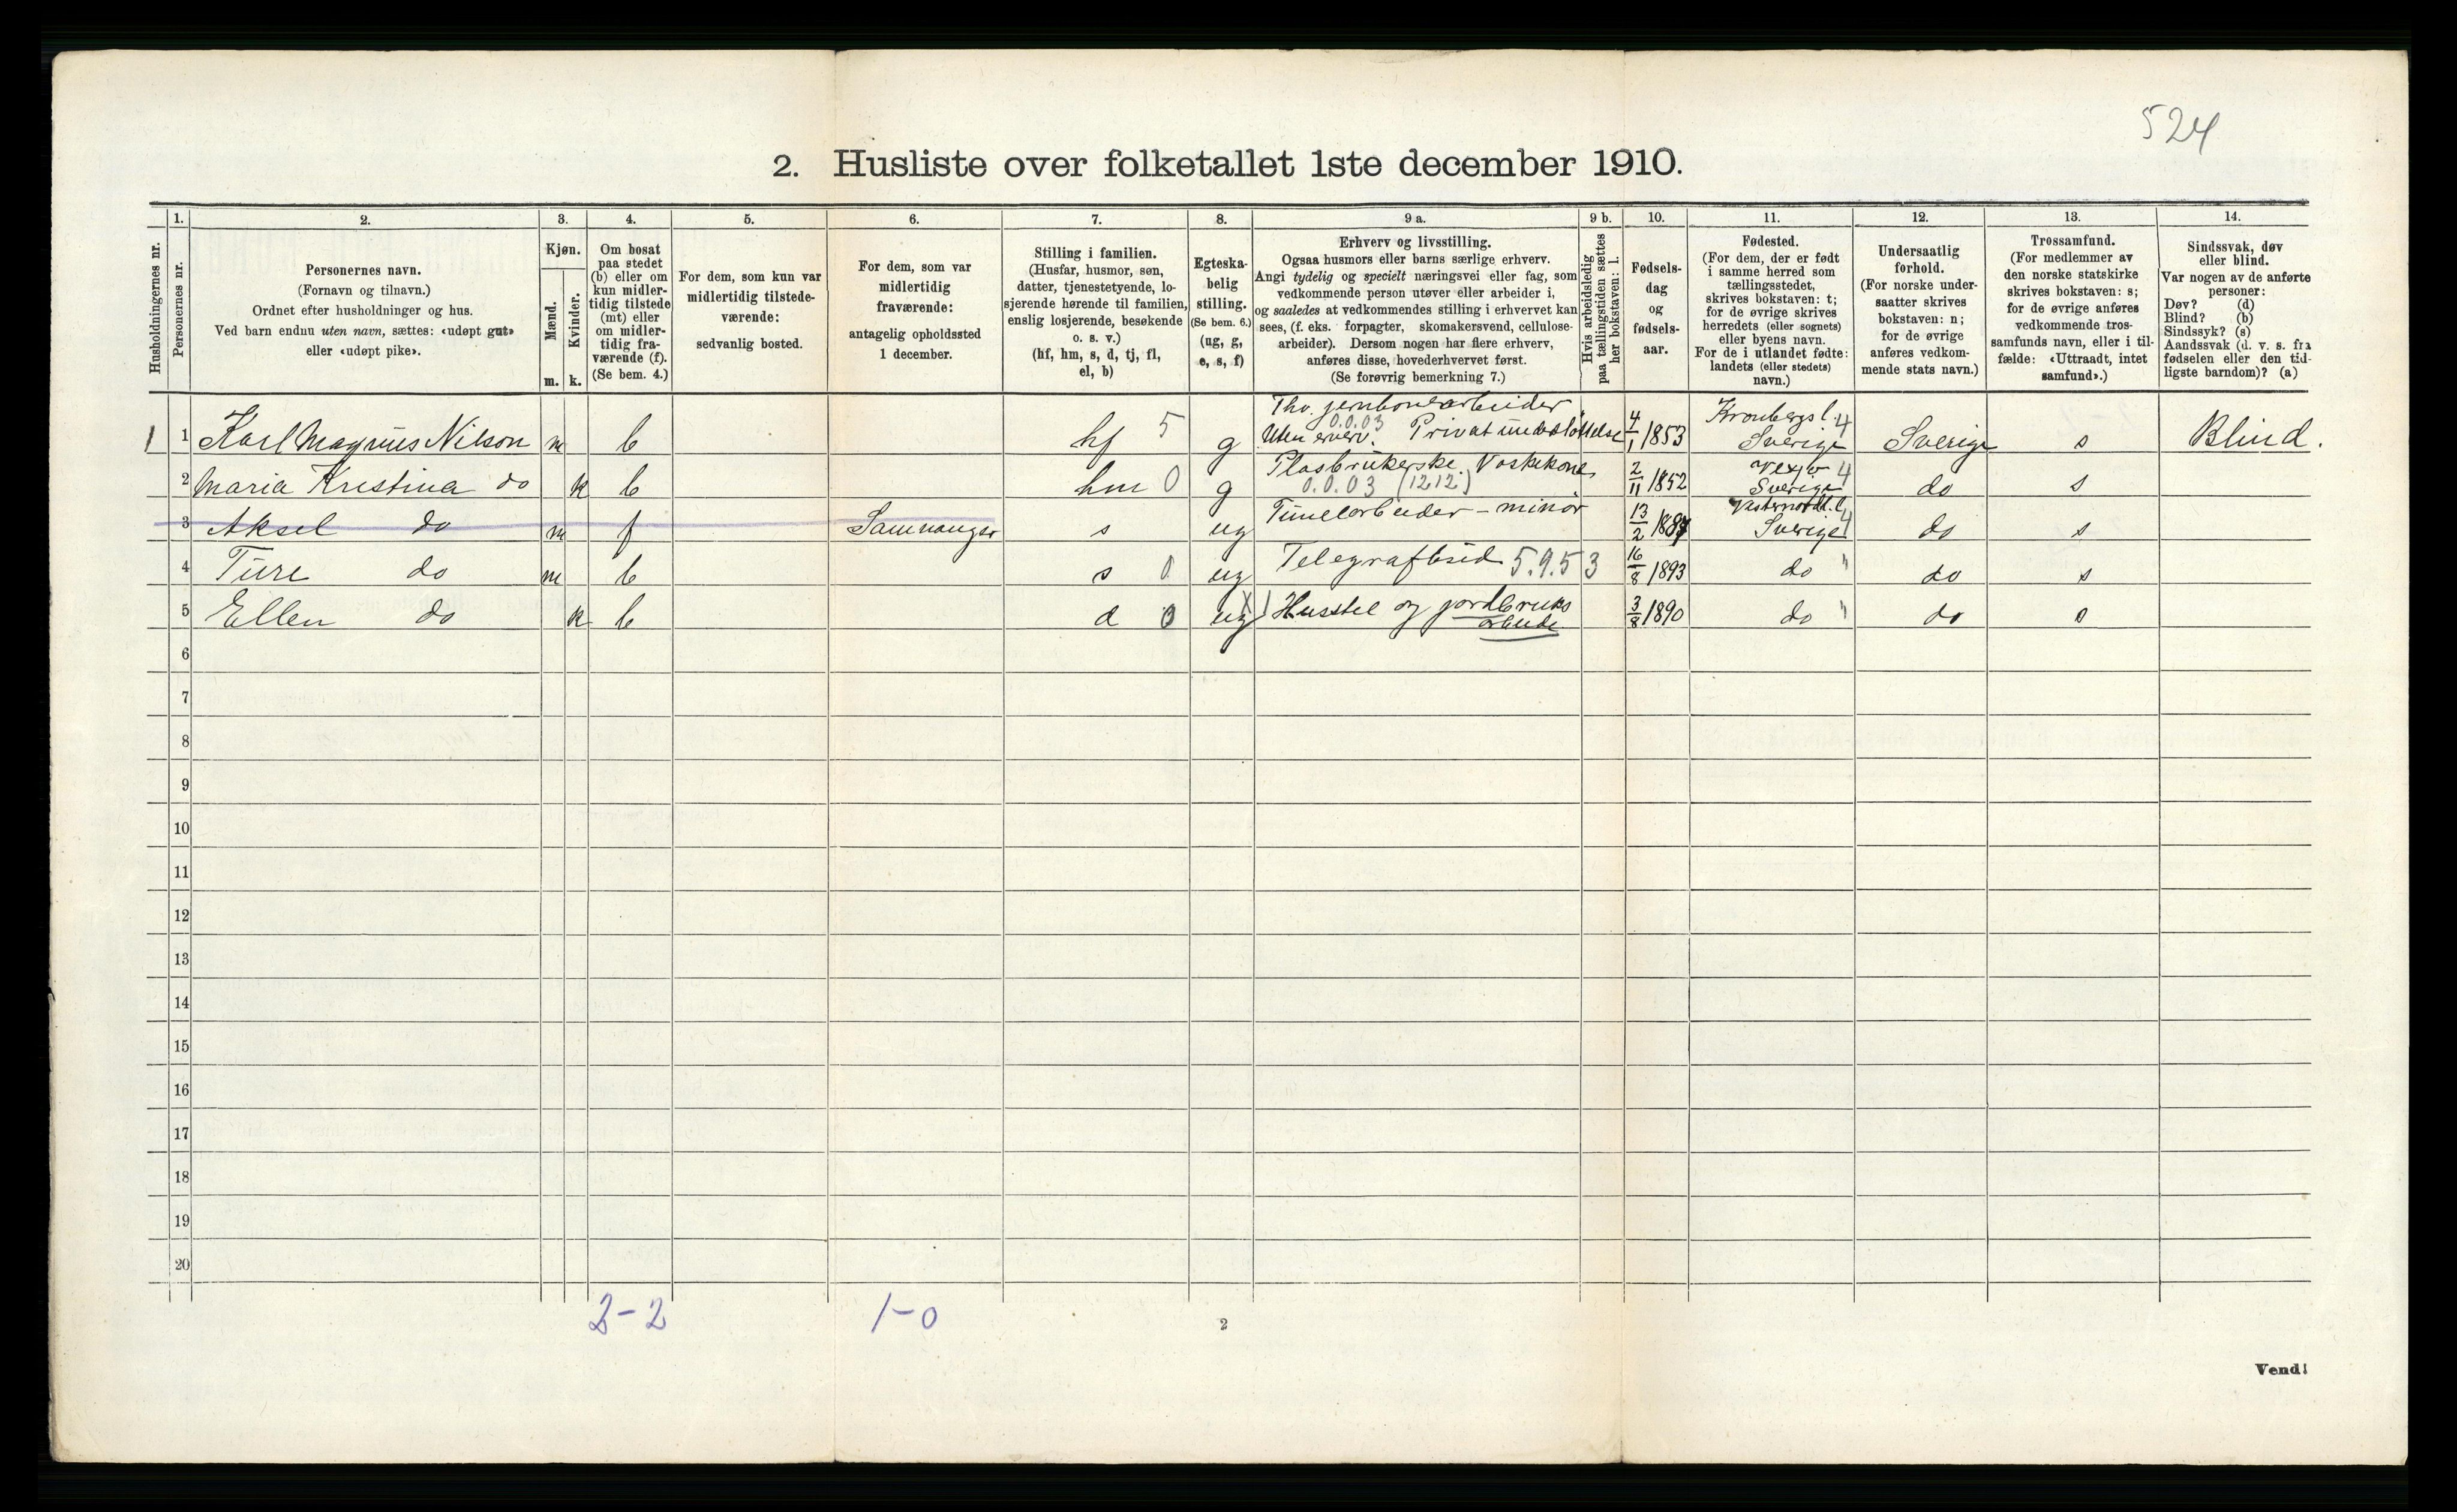 524
2. Husliste over folketallet 1ste december 1910.
Husholdningernes nr.
1.
Personernes nr.
2.
Personernes navn.
(Fornavn og tilnavn.)
Ordnet efter husholdninger og hus.
Ved barn endnu uten navn, sættes: «udøpt gut»
eller «udøpt pike».
3.
Kjøn.
Mænd.
Kvinder.
m. k.
4.
Om bosat
paa stedet
(b) eller om
kun midler-
tidig tilstede
(mt) eller
om midler-
tidig fra-
værende (f).
(Se bem. 4.)
5.
For dem, som kun var
midlertidig tilstede-
værende:
sedvanlig bosted.
6.
For dem, som var
midlertidig
fraværende:
antagelig opholdssted
1 december.
7.
Stilling i familien.
(Husfar, husmor, søn,
datter, tjenestetyende, lo-
sjerende hørende til familien,
enslig losjerende, besøkende
o. s. v.)
(hf, hm, s, d, tj, fl,
el, b)
8.
Egteska-
belig
stilling.
(Se bem. 6.)
(ug, g,
e, s, f)
9 a.
Erhverv og livsstilling.
Ogsaa husmors eller barns særlige erhverv.
Angi tydelig og specielt næringsvei eller fag, som
vedkommende person utøver eller arbeider i,
og saaledes at vedkommendes stilling i erhvervet kan
sees, (f. eks. forpagter, skomakersvend, cellulose-
arbeider). Dersom nogen har flere erhverv,
anføres disse, hovederhvervet først.
(Se forøvrig bemerkning 7.)
9 b.
Hvis arbeidsledig
paa tællingstiden sættes
her bokstaven: l.
10.
Fødsels-
dag
og
fødsels-
aar.
11.
Fødested.
(For dem, der er født
i samme herred som
tællingsstedet,
skrives bokstaven: t;
for de øvrige skrives
herredets (eller sognets)
eller byens navn.
For de i utlandet fødte:
landets (eller stedets)
navn.)
12.
Undersaatlig
forhold.
(For norske under-
saatter skrives
bokstaven: n;
for de øvrige
anføres vedkom-
mende stats navn.)
13.
Trossamfund.
(For medlemmer av
den norske statskirke
skrives bokstaven: s;
for de øvrige anføres
vedkommende tros-
samfunds navn, eller i til-
fælde: «Uttraadt, intet
samfund».)
14.
Sindssvak, døv
eller blind.
Var nogen av de anførte
personer:
Døv? (d)
Blind? (b)
Sindssyk? (s)
Aandssvak (d. v. s. fra
fødselen eller den tid-
ligste barndom)? (a)
Thv. jernbanearbeider Kronbergs l. 4
0.0.03
1 1 Karl Magnus Nilson m b hf 5 g Uten erverv. Privat understøttelse 4/1 1853 Sverige Sverige s Blind.
Plasbrukerske. Vaskekone Vexjø 4
2 Maria Kristina do k b hm 0 g 0.0.03 (1212) 2/11 1852 Sverige do s
3 Aksel do m f Samnanger s ug Tunelarbeider - minør 13/2 1887 Vesternordl. l. Sverige 4 do s
4 Ture do m b s 0 ug Telegrafbud 5.9.53 16/8 1893 do " do s
5 Ellen do k b d 0 ug X) Husstel og jordbruks 3/8 1890 do " do s
arbeide
6
7
8
9
10
11
12
13
14
15
16
17
18
19
20
2-2 1-0
2
Vend!